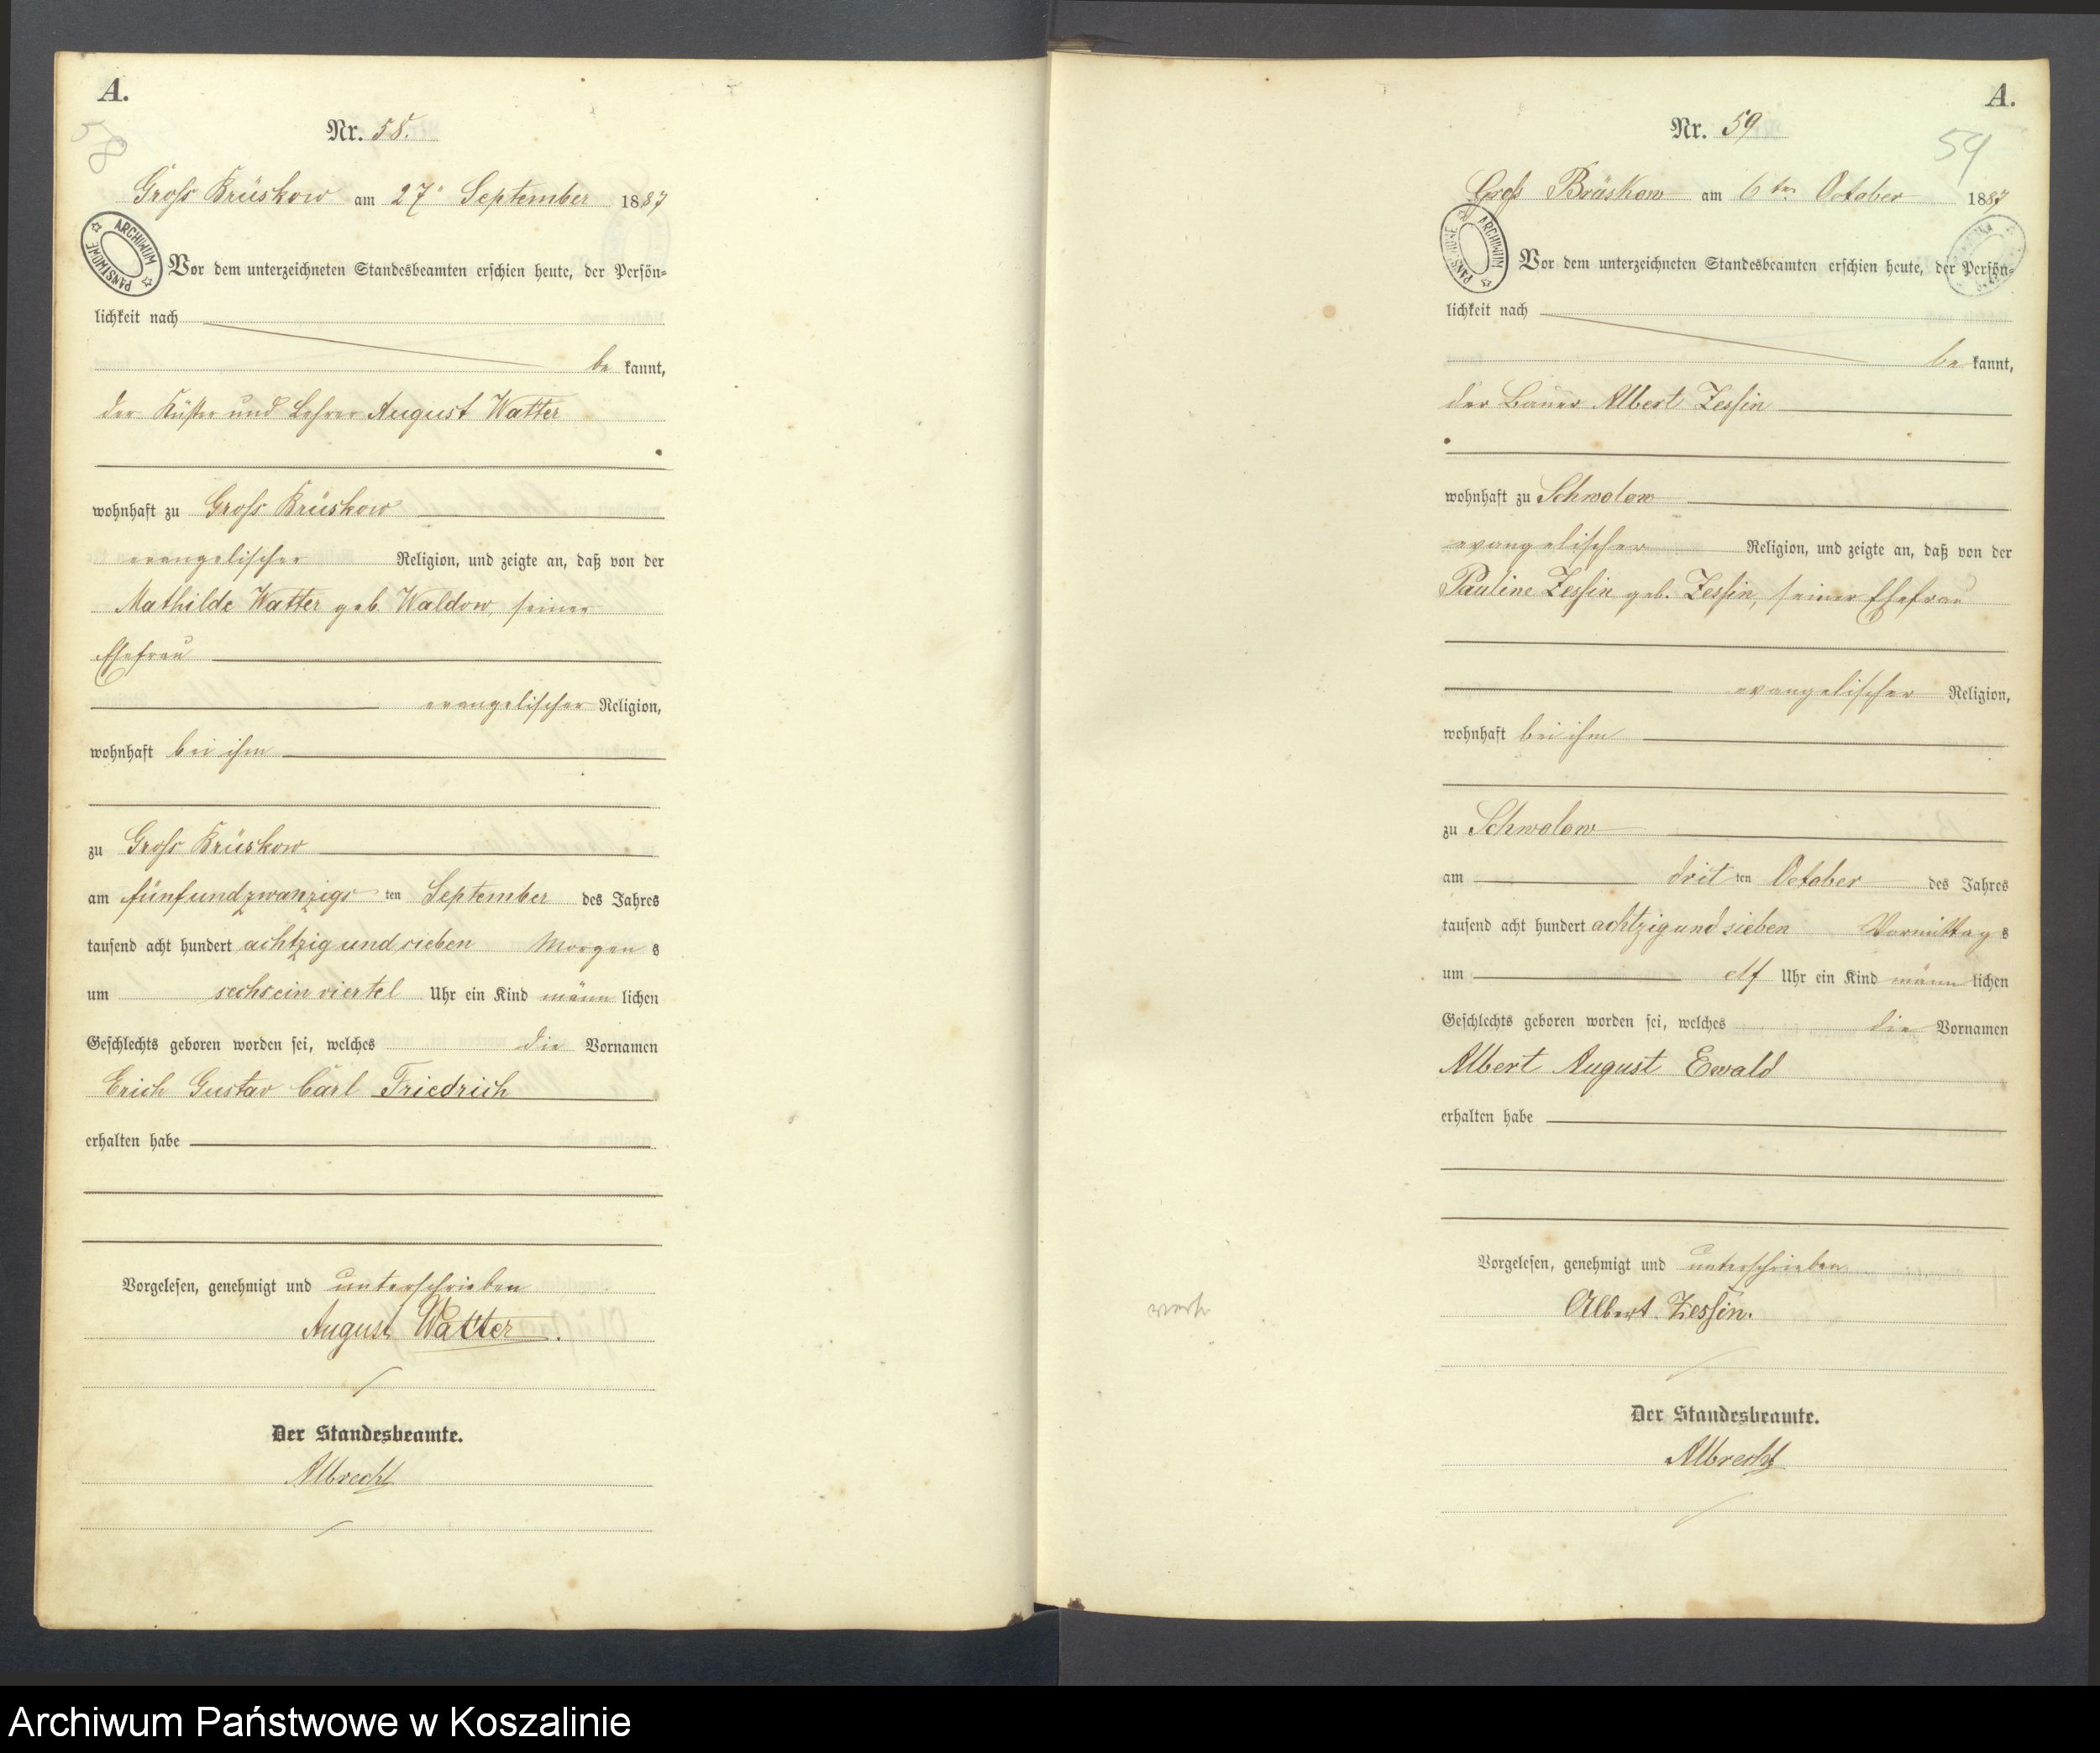 A.
58
Nr. 58.
Gross Brüskow am 27n September 1887
ARCHIWUM PAŃSTWOWE
Vor dem unterzeichneten Standesbeamten erschien heute, der Persön-
lichkeit nach
be kannt,
der Küster und Lehrer August Watter
wohnhaft zu Gross Brüskow
evangelischer Religion, und zeigte an, daß von der
Mathilde Watter geb. Waldow, seiner
Ehefrau
evangelischer Religion,
wohnhaft bei ihm
zu Gross Brüskow
am fünfundzwanzigs ten September des Jahres
tausend acht hundert achtzig und sieben Morgen s
um sechs ein viertel Uhr ein Kind männ lichen
Geschlechts geboren worden sei, welches die Vornamen
Erich Gustav Carl Friedrich
erhalten habe
Vorgelesen, genehmigt und unterschrieben
August Watter.
Der Standesbeamte.
Albrecht
A.
59
Nr. 59
Gross Brüskow am 6ten October 1887
ARCHIWUM PAŃSTWOWE
Vor dem unterzeichneten Standesbeamten erschien heute, der Persön-
lichkeit nach
be kannt,
der Bauer Albert Zessin
wohnhaft zu Schwolow
evangelischer Religion, und zeigte an, daß von der
Pauline Zessin geb. Zessin, seiner Ehefrau
evangelischer Religion,
wohnhaft bei ihm
zu Schwolow
am drit ten October des Jahres
tausend acht hundert achtzig und sieben Vormittag s
um elf Uhr ein Kind männ lichen
Geschlechts geboren worden sei, welches die Vornamen
Albert August Ewald
erhalten habe
Vorgelesen, genehmigt und unterschrieben
Albert Zessin.
Der Standesbeamte.
Albrecht
Archiwum Państwowe w Koszalinie